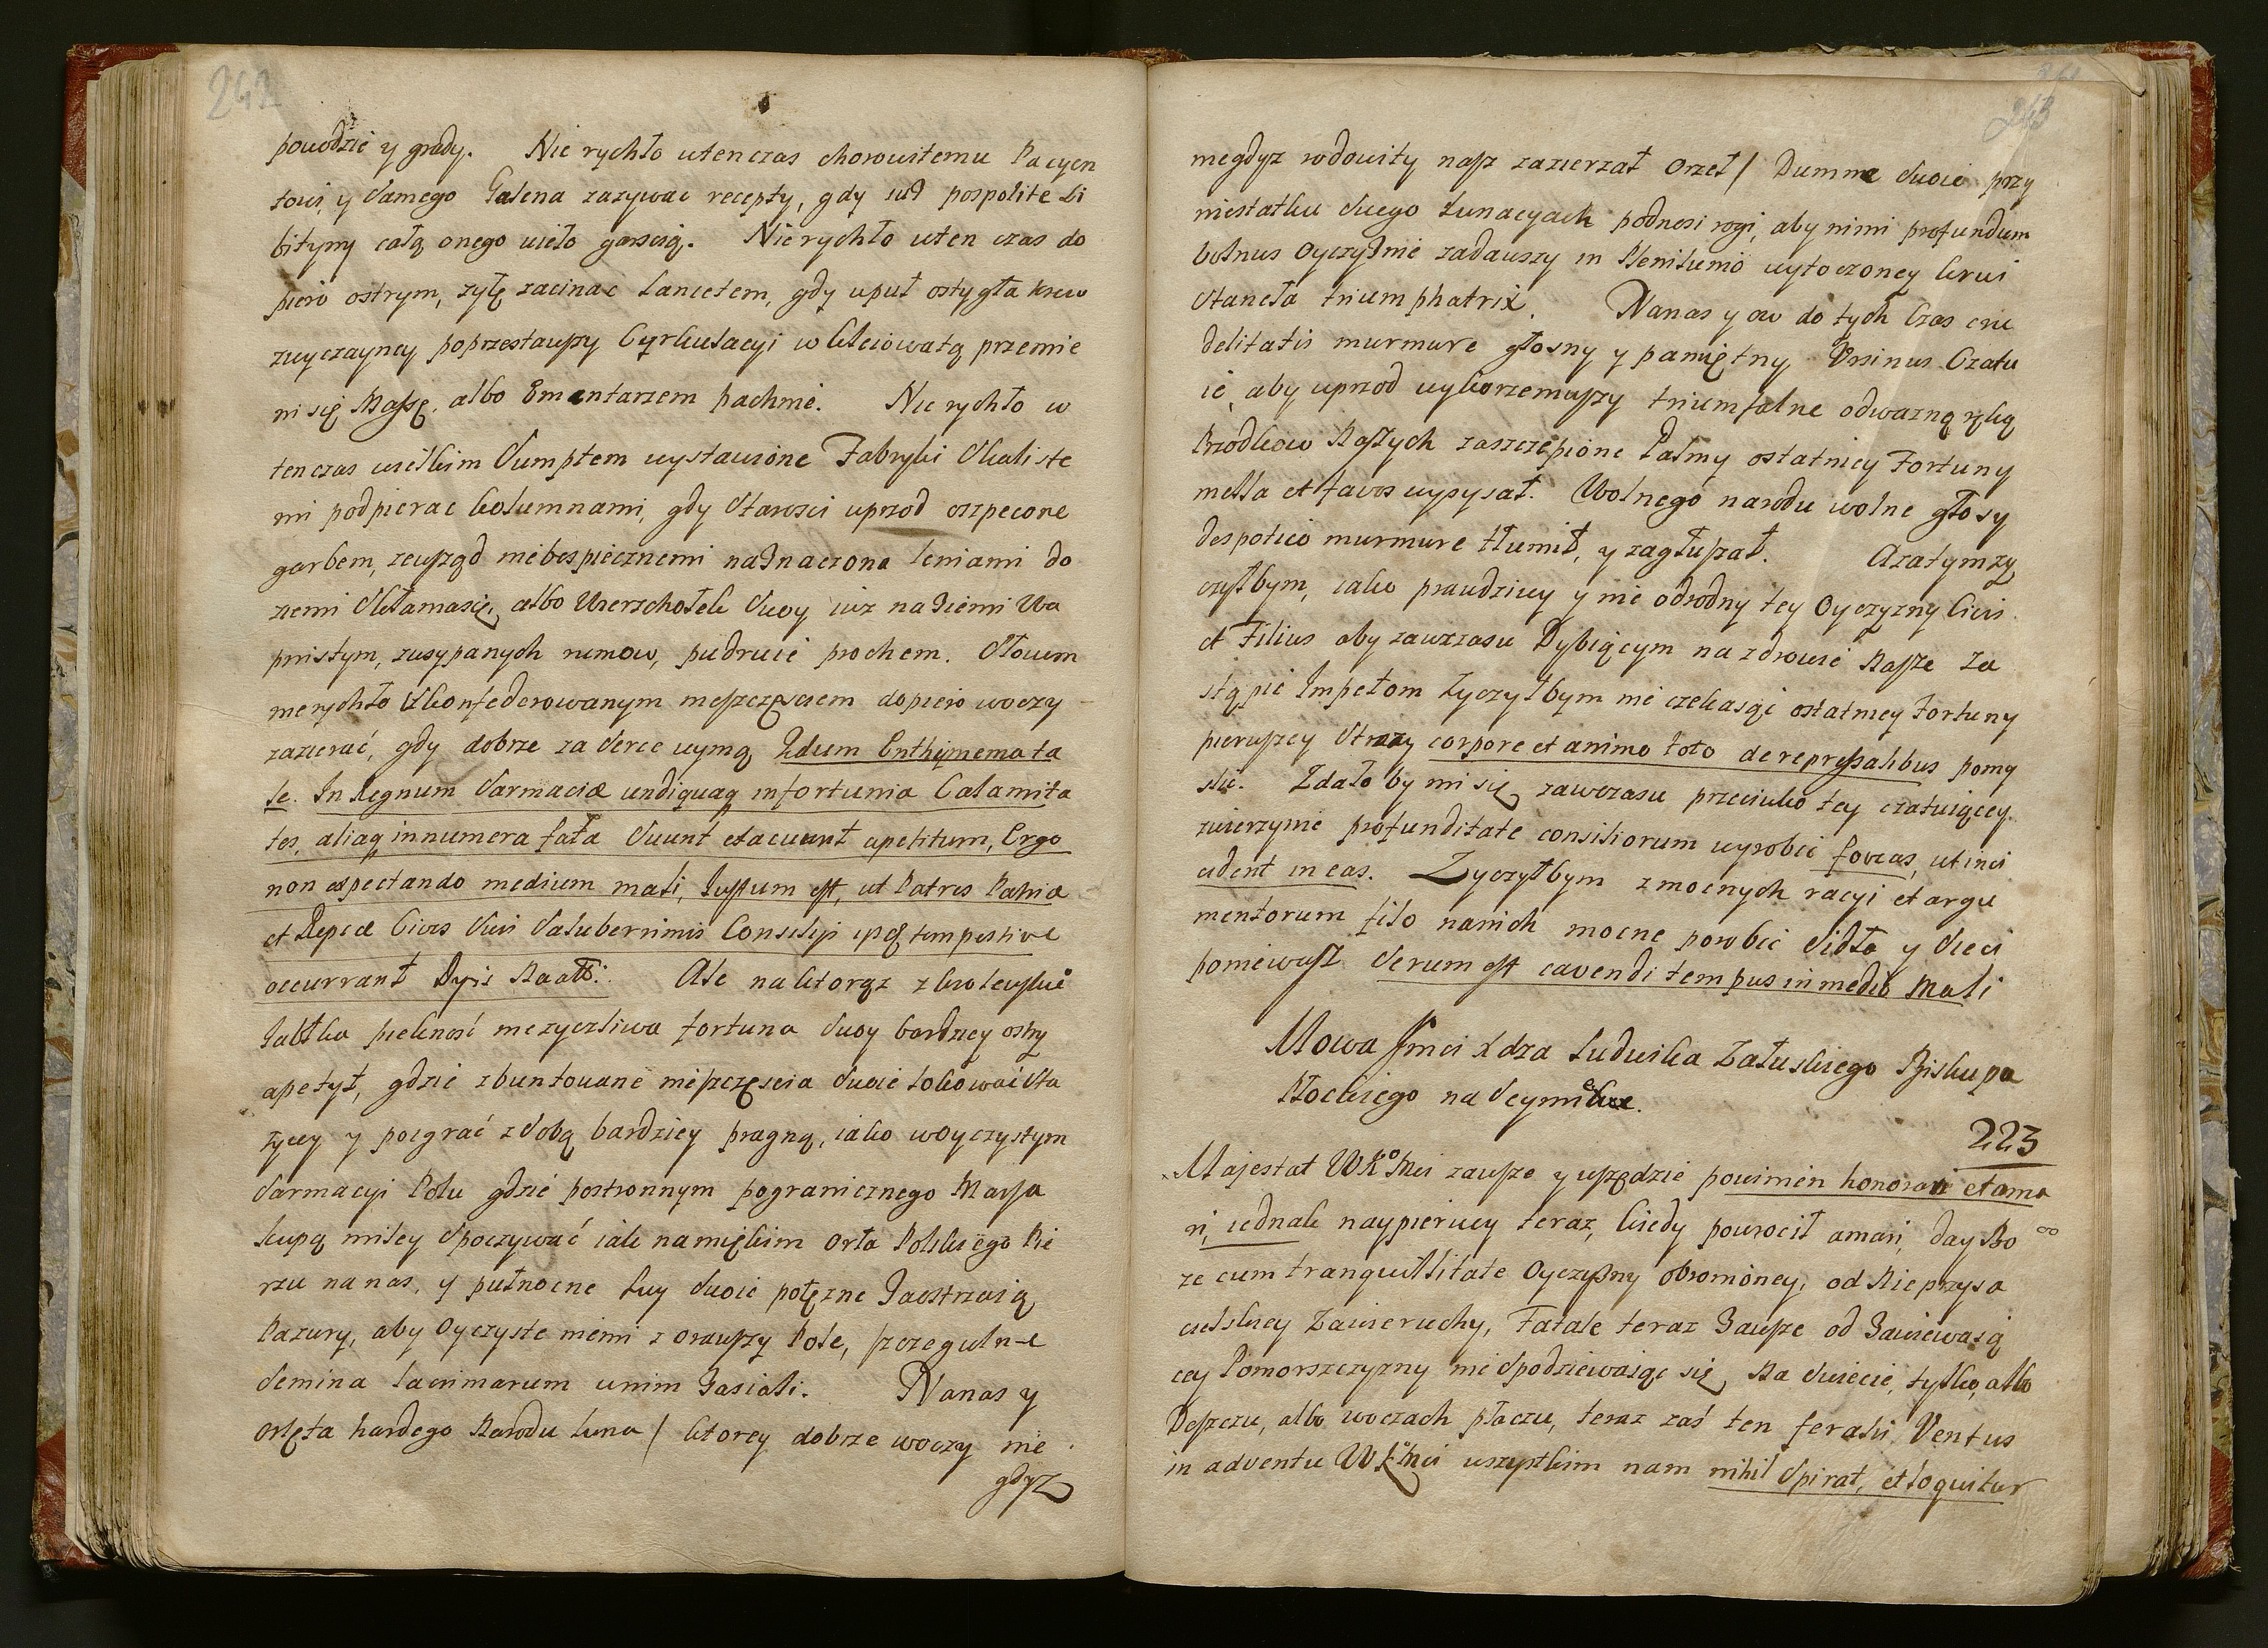 242
powodzie y grady. Nie rychło wtenczas chorowitemu Pacyen
towi, y samego Galena zazywac recepty, gdy iuż pospolite Li
bityny całą onego wieło garscią. Nierychło wten czas do
piero ostrym, zyłę zacinac Lancetem, gdy uput ostygła krew
zwyczayney poprzestawszy Cyrkulacyi w kleiowatą przemie
ni się Massę, albo Ementarzem pachnie. Nie rychło w
tenczas wielkim Sumptem wystawione Fabryki Skaliste
mi podpierac kolumnami, gdy starosci uprzod oszpecone
garbem, zewsząd niebespiecznemi naznaczona leniami do
ziemi skłamasię, albo Wierzchołek swoy iuz na Ziemi Wa
pnistym, zusypanych rumow, pudruie prochem. Słowem
nierychło Skonfederowanym nieszczęsciem dopiero woczy
zazierać, gdy dobrze za serce uymą Zdum Enthymemata
le. In Regnum Sarmaciæ undiquaq infortunia Calamita
tes, aliaq innumera fata Suunt et acuunt apetitum, Ergo
non expectando medium mali, Justum est, ut Patres Patriæ
et Reipcæ Cives Sui Saluberrimis Consilijs ipsis tempestive
occurrant Dys Raatt: Ale naktorąz z krolewskie
Jabłka pieknosć niezyczliwa fortuna swoy bardziey ostry
apetyt, gdzie zbuntowane nieszczęscia swoie lokować sta
zycey y poigrać z sobą bardziey pragną, iako woyczystym
Sarmacyi Polu gdzie postronnym pogranicznego Marsa
łupą miley spoczywać iak namiękim orła Polskiego Pie
rzu na nas, y pułnocne Lwy swoie potęzne Zaostrzaią
Pazury, aby oyczyste niemi zorawszy Pole, szczegulne
Semina lacrimarum wnim Zasiali. Nanas y
orlęta hardego Narodu Luna / ktorey dobrze woczy nie
gdyz
243
niegdyz rodowity nasz zazierzał Orzeł / Dumna swoie przy
niestatku swego Lunacyach podnosi rogi, aby nimi profundum
volnus oyczyznie zadawszy in Plenilunio wytoczoney krwi
stanęła triumphatrix. Nanas y ow do tych Czas cru
delitatis murmure głosny y pamiętny Ursinus Czatu
ie, aby uprzod wykorzemiwszy triumfalne odwazną ręką
Przodkow Naszych zaszczepione Palmy ostatniey Fortuny
mella et favos wyssysał. Wolnego narodu wolne głosy
despotico murmure tłumił, y zagłuszał. Azatym zy
czyłbym, iako prawdziwy y nie odrodny tey Oyczyzny Civis
et Filius aby zawczasu Dybiącym na zdrowie Nasze Za
stąpić Impetom Zyczyłbym nie czekaiąc ostatniey Fortuny
pierwszey Strazy corpore et animo toto de repressalibus pomy
slić. Zdało by mi się zawczasu przeciwko tey czatuiącey
zwierzynie profunditate consiliorum wyrobić foveas, ut inci
cident in eas. Zyczyłbym zmocnych racyi et argu
mentorum filo nanich mocne porobić sidła y sieci
poniewasz Serum est cavendi tempus in medio Mali
Mowa Jmci Xdza Ludwika Załuskiego Biskupa
Płockiego na seymie.
223
Majestat WKo Mci zawsze y wszędzie powinien honorari et ama
ri, iednak naypierwey teraz, kiedy powrocił amari, day Bo
ze cum tranquillitate Oyczyzny obronioney, od Nieprzyia
cielskiey Zawieruchy, Fatale teraz Zawsze od Zawiewaią
cey Pomorszczyzny nie spodziewaiąc się, Na swiecie, tylko, albo
Deszczu, albo woczach płaczu, teraz zaś ten ferali Ventus
in adventu WKo Mci wszystkim nam nihil spirat, et loquitur